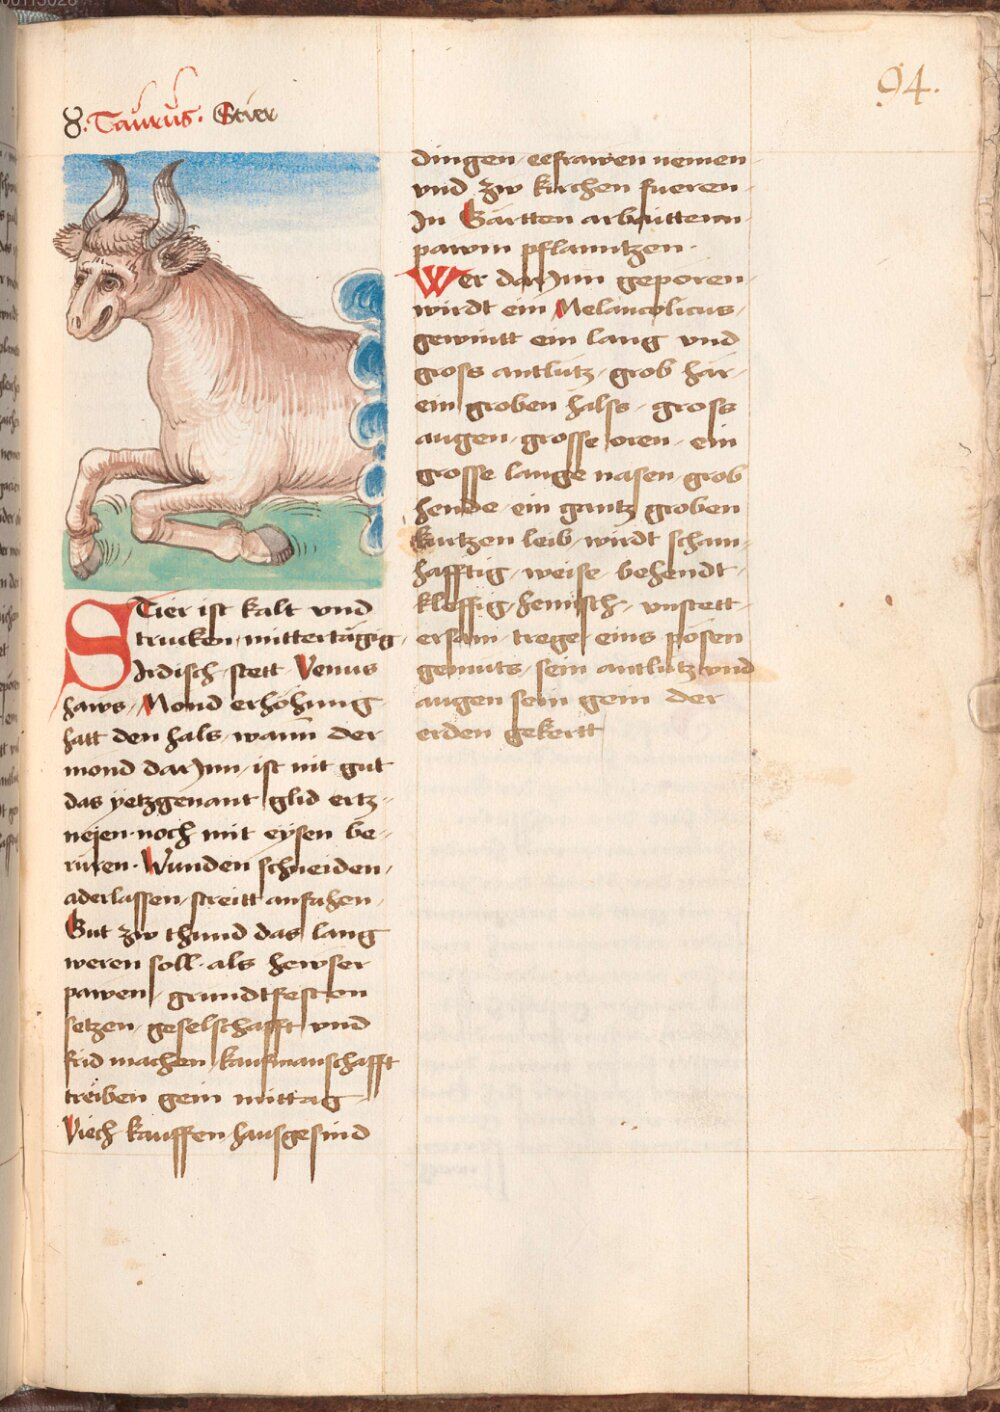 94.
♉. Taurus. Stier
STier ist kalt vnd
trucken, mittertägig,
Irdisch, stett Venus
haws, Mond erhöhung
hatt den hals, wann der
mond darjnn, ist nit gut
das yetzgenant glid ertz-
neien, noch mit eysen be-
rüren. Wunden schneiden,
aderlassen, streitt anfahen,
Gut zw thund das lang
weren soll, als hewser
pawen, grundtfesten
setzen, geselschafft vnd
frid machen, kaufmanschafft
treiben gein mittag
Viech kauffen, hausgesind
dingen, eefrawen nemen
vnd zw kirchen fueren,
In Gärtten arbaittenn,
pawm pflanntzen.
Wer darjnn geporen
wirdt ein Melancolicus,
gewintt ein lang vnd
gross antlütz, grob har,
ein groben halss, gross
augen, grosse oren, ein
grosse lange nasen, grob
hende, ein gantz groben
kurtzen leib, wirdt scham-
hafftig, weise, behendt,
kleffig, hemisch, vnstett,
ersam, trege, eins pösen
gemuts, sein antlütz vnd
augen sein gein der
erden gekertt